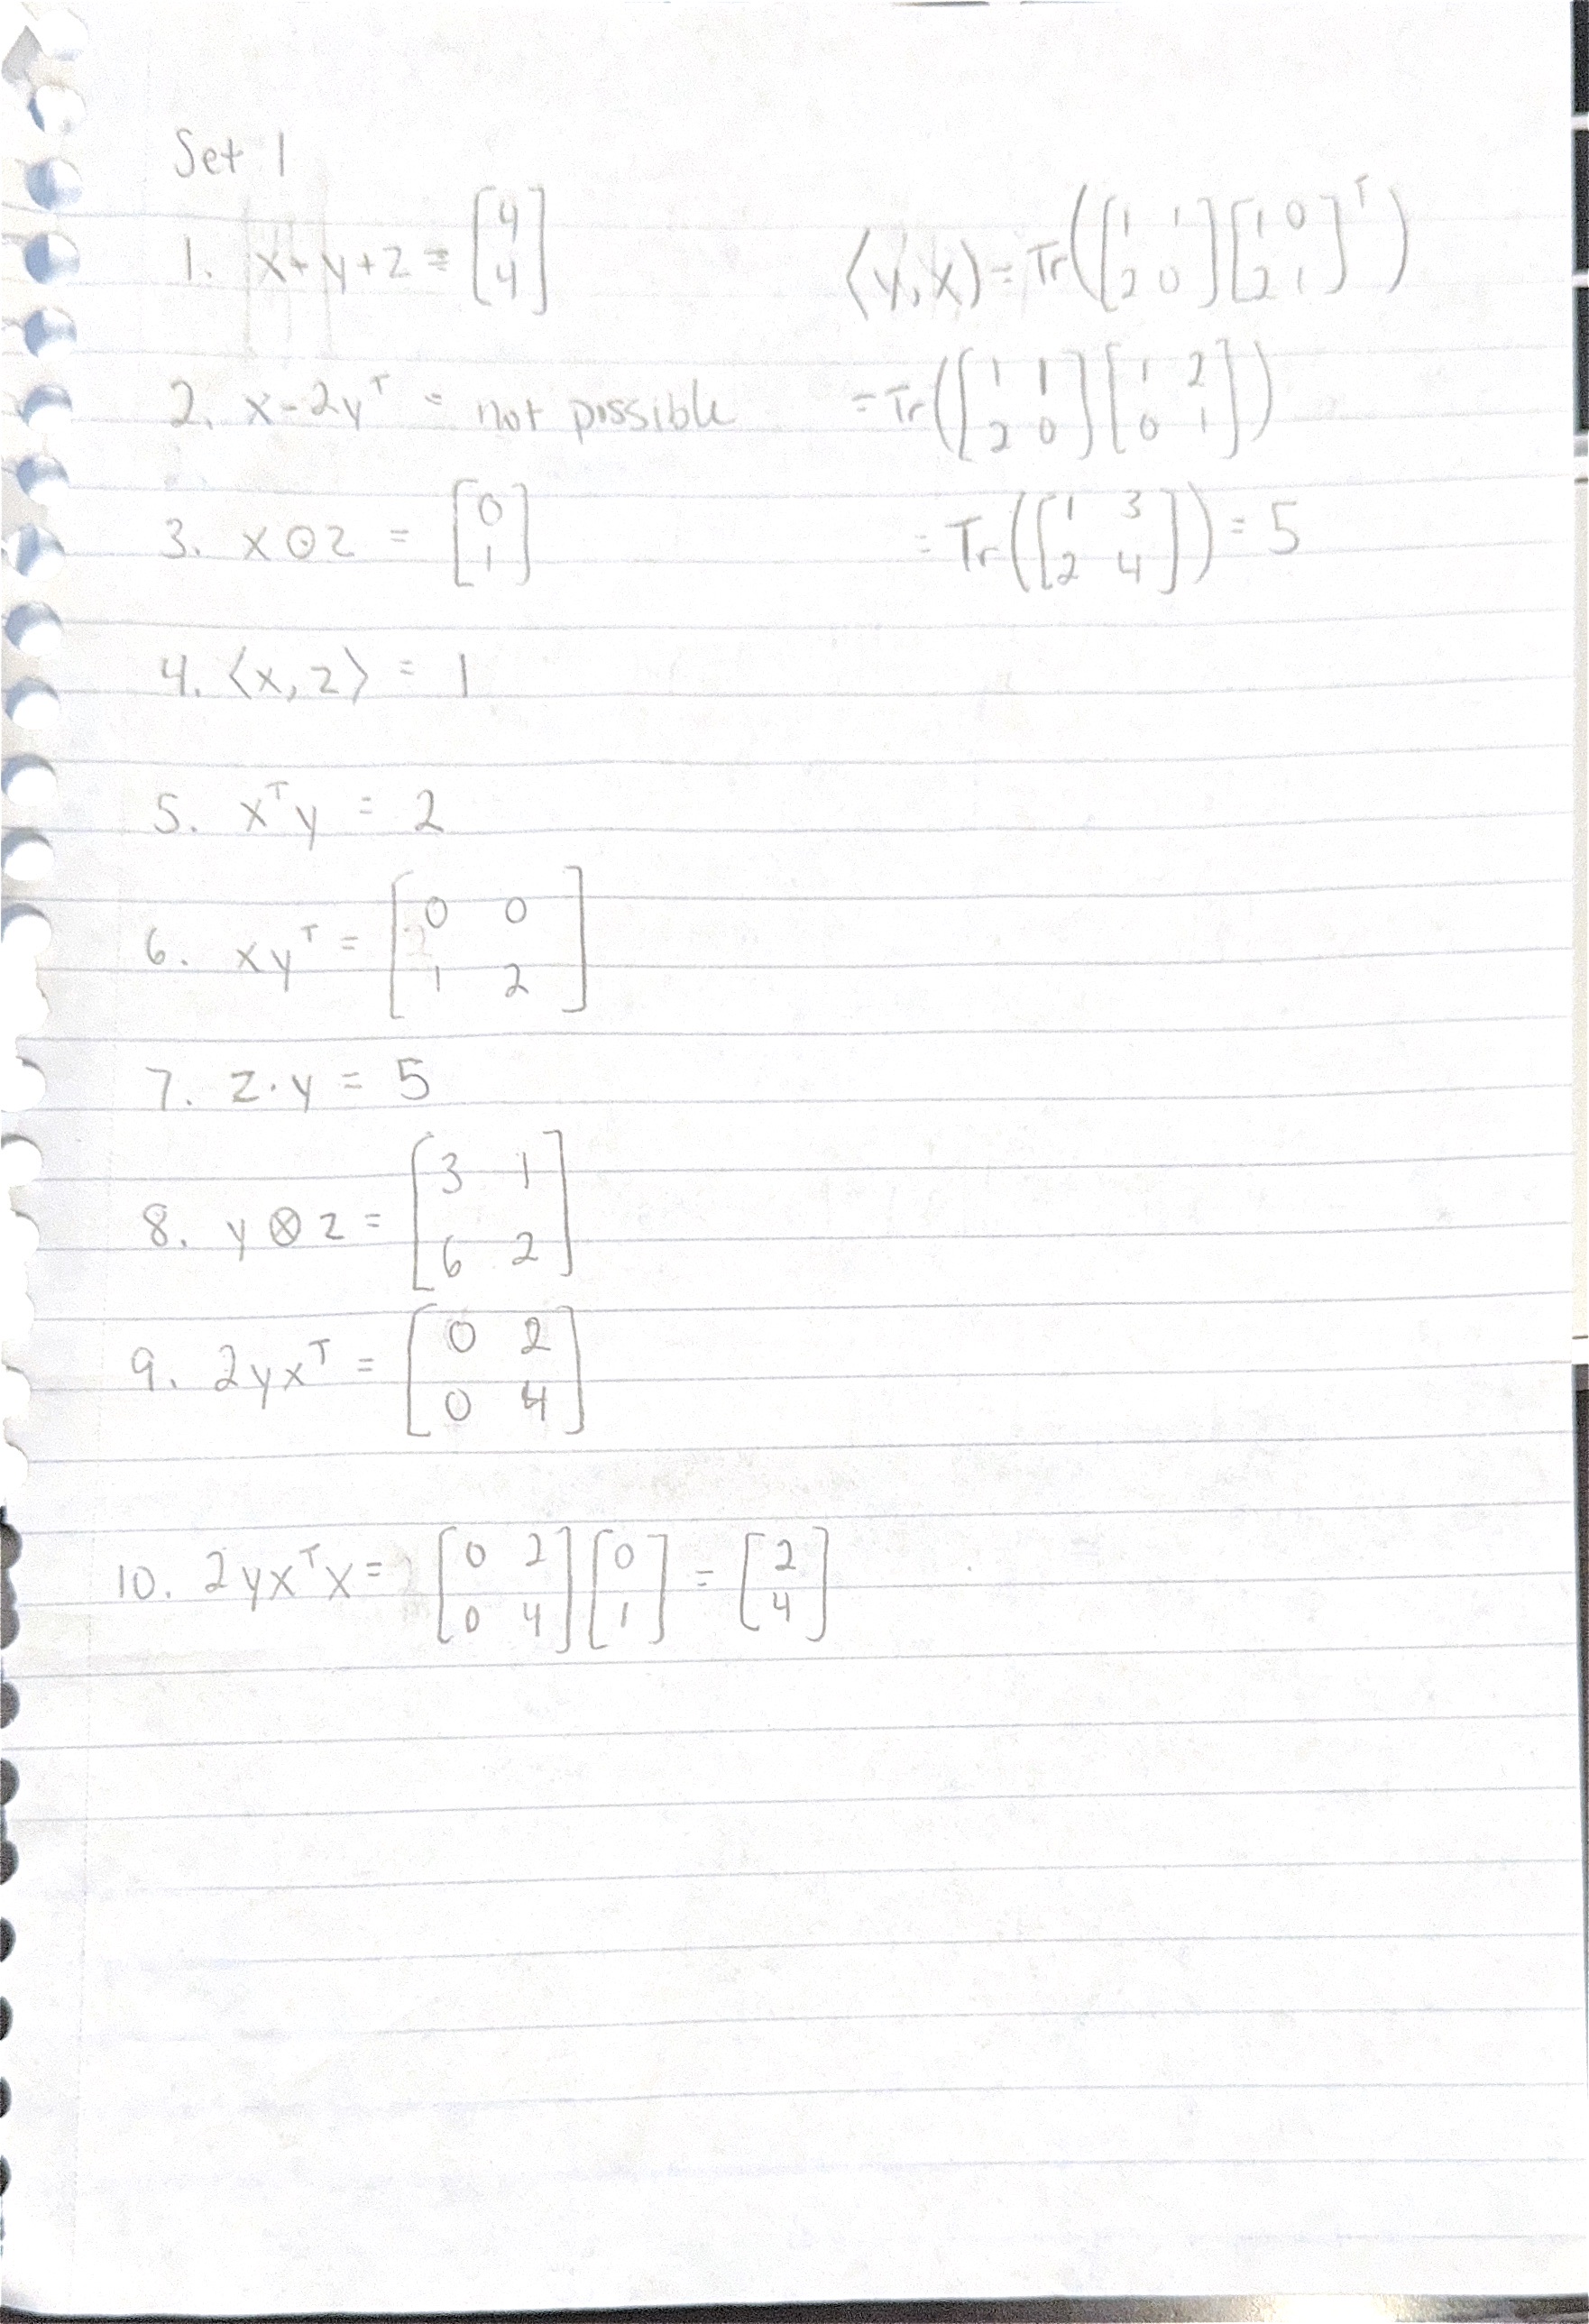 Set 1
1. x+y+z = [4 4]
2. x-2yᵀ = not possible
3. x⊙z = [0 1]
4. ⟨x,z⟩ = 1
5. xᵀy = 2
6. xyᵀ = [0 0 1 2]
7. z·y = 5
8. y⊗z = [3 1 6 2]
9. 2yxᵀ = [0 2 0 4]
10. 2yxᵀx = [0 2 0 4][0 1] = [2 4]
⟨Y,X⟩ = Tr([1 1 2 0][1 0 2 1]ᵀ)
= Tr([1 1 2 0][1 2 0 1])
= Tr([1 3 2 4]) = 5